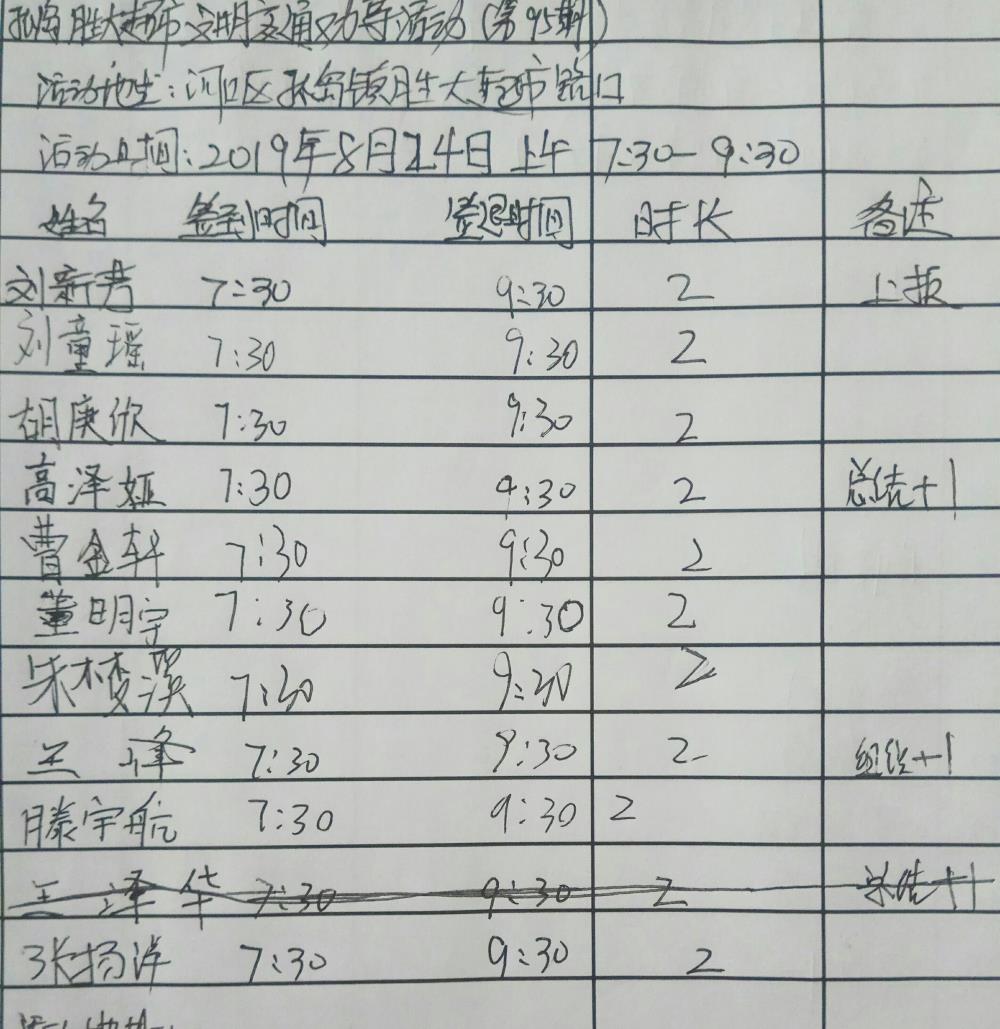 孤岛胜大超市文明交通劝导活动(第95期)
活动地点:河口区孤岛镇胜大超市路口
活动时间:2019年8月24日上午 7:30-9:30
姓名 签到时间 签退时间 时长 备述
刘新君 7:30 9:30 2 上报
刘童瑶 7:30 9:30 2
胡庚欣 7:30 9:30 2
高泽娅 7:30 9:30 2 总结+1
曹金轩 7:30 9:30 2
董明宇 7:30 9:30 2
朱梦溪 7:30 9:30 2
兰峰 7:30 9:30 2 组织+1
滕宇航 7:30 9:30 2
王泽华 7:30 9:30 2 总结+1
张扬洋 7:30 9:30 2